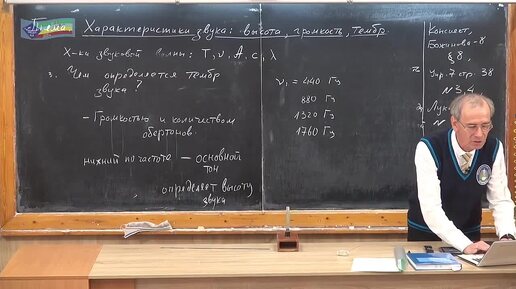 Тема
Характеристики звука: высота, громкость, тембр.
Х-ка звуковой волны: T, ν, A, c, λ
3. Чем определяется тембр
звука?
- Громкостью и количеством
обертонов
нижний по частоте – основной
тон
определяет высоту
звука
ν₁ = 440 Гц
880 Гц
1320 Гц
1760 Гц
Конспект,
Божинова-8
§ 8,
Упр. 7 стр. 38
№ 3,4
Лук
№